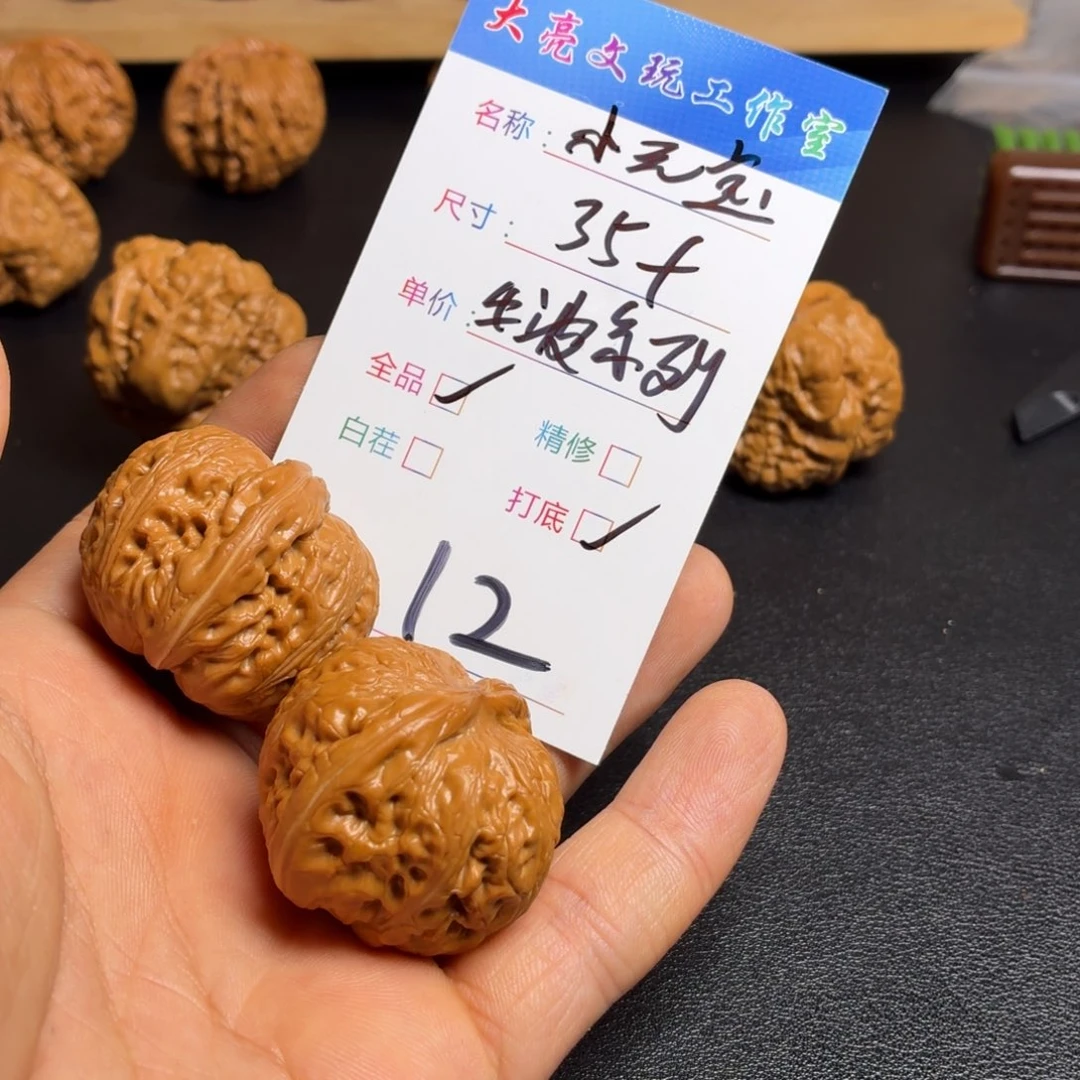 大亮文玩工作室
名称：小元宝
尺寸：35+
单价：生波系列
全品 ✓
白茬 □ 精修 □
打底 ✓
12